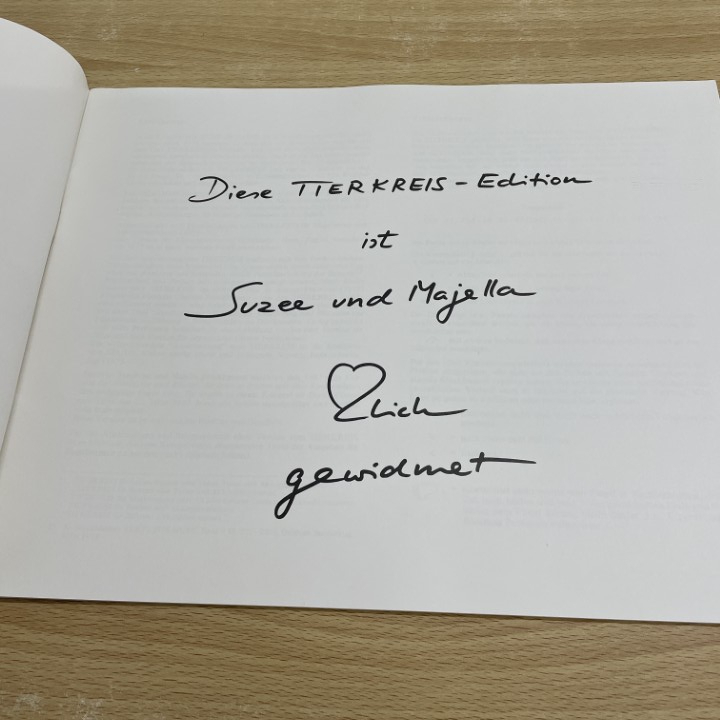 Diese TIERKREIS - Edition
ist
Suzee und Majella
♡lich
gewidmet